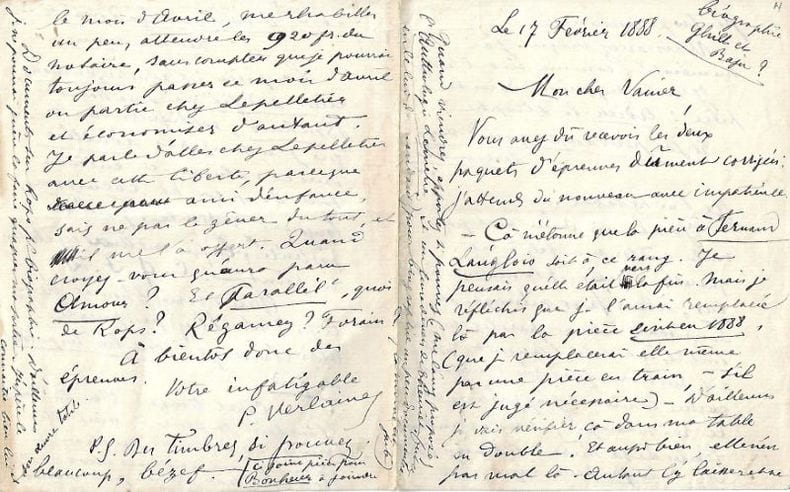 Le 17 Février 1888.
biographie
Ghil et
Baju ?
Mon cher Vanier
Vous avez dû recevoir les deux
paquets d'épreuves dûment corrigés :
j'attends du nouveau avec impatience.
— Cà m'étonne que la pièce à Fernand
Langlois soit à ce rang. Je
pensais qu'elle était vers la fin, mais je
réfléchis que je l'aurai remplacée
là par la pièce écrite en 1888,
(que je remplacerai elle même
par une pièce en train, — s'il
est jugé nécessaire) — D'ailleurs
je vais vérifier cà dans ma table
en double. Et aussi bien, elle n'en
pas mal là. Autant l'y laisser
Quand viendrez, apportez si pouvez
le mois d'Avril, me rhabiller
un peu, attendre les 920 frs du
notaire, sans compter que je pourrai
toujours passer ce mois d'avril
ou partie chez Lepelletier
et économiser d'autant.
Je parle d'aller chez Lepelletier
avec cette liberté, parceque
ami d'enfance,
sais ne pas le gêner du tout, et
il me l'a offert. Quand
croyez-vous qu'aura paru
Amour ? Et Parallèl', quoi
de Rops ? Régamey ? Forain ?
À bientôt donc des
épreuves.
Votre infatigable
P. Verlaine
P.S. Des timbres, si pouvez
beaucoup, bézef.
Ci joint pièce pour
Bonheur à joindre
Documents sur Rops pr biographie. D'ailleurs
son œuvre total.